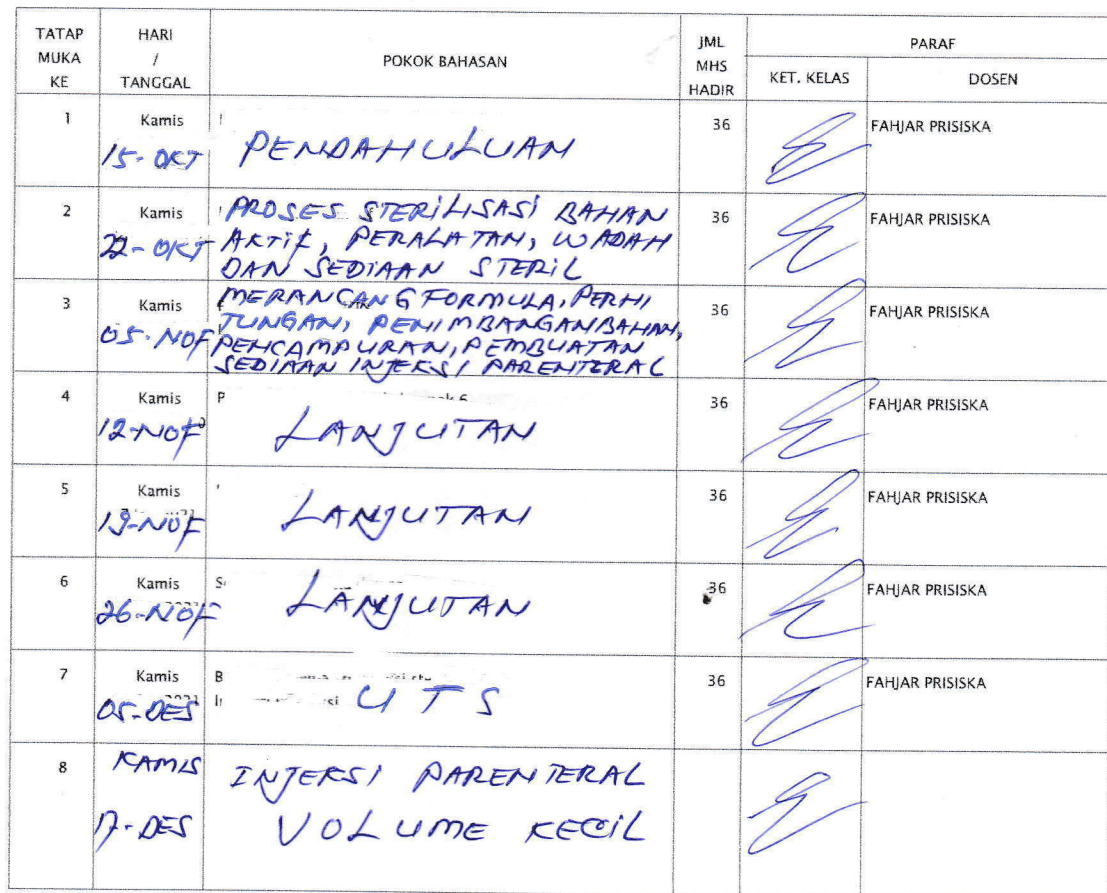 TATAP MUKA KE
HARI / TANGGAL
POKOK BAHASAN
JML MHS HADIR
PARAF
KET. KELAS
DOSEN
1
Kamis
15-OKT
PENDAHULUAN
36
FAHJAR PRISISKA
2
Kamis
22-OKT
PROSES STERILISASI BAHAN
AKTIF, PERALATAN, WADAH
DAN SEDIAAN STERIL
36
FAHJAR PRISISKA
3
Kamis
05-NOF
MERANCANG FORMULA, PERHI
TUNGAN, PENIMBANGAN BAHAN,
PENCAMPURAN, PEMBUATAN
SEDIAAN INJEKSI PARENTERAL
36
FAHJAR PRISISKA
4
Kamis
12-NOF
LANJUTAN
36
FAHJAR PRISISKA
5
Kamis
19-NOF
LANJUTAN
36
FAHJAR PRISISKA
6
Kamis
26-NOF
LANJUTAN
36
FAHJAR PRISISKA
7
Kamis
05-DES
UTS
36
FAHJAR PRISISKA
8
KAMIS
17-DES
INJEKSI PARENTERAL
VOLUME KECIL